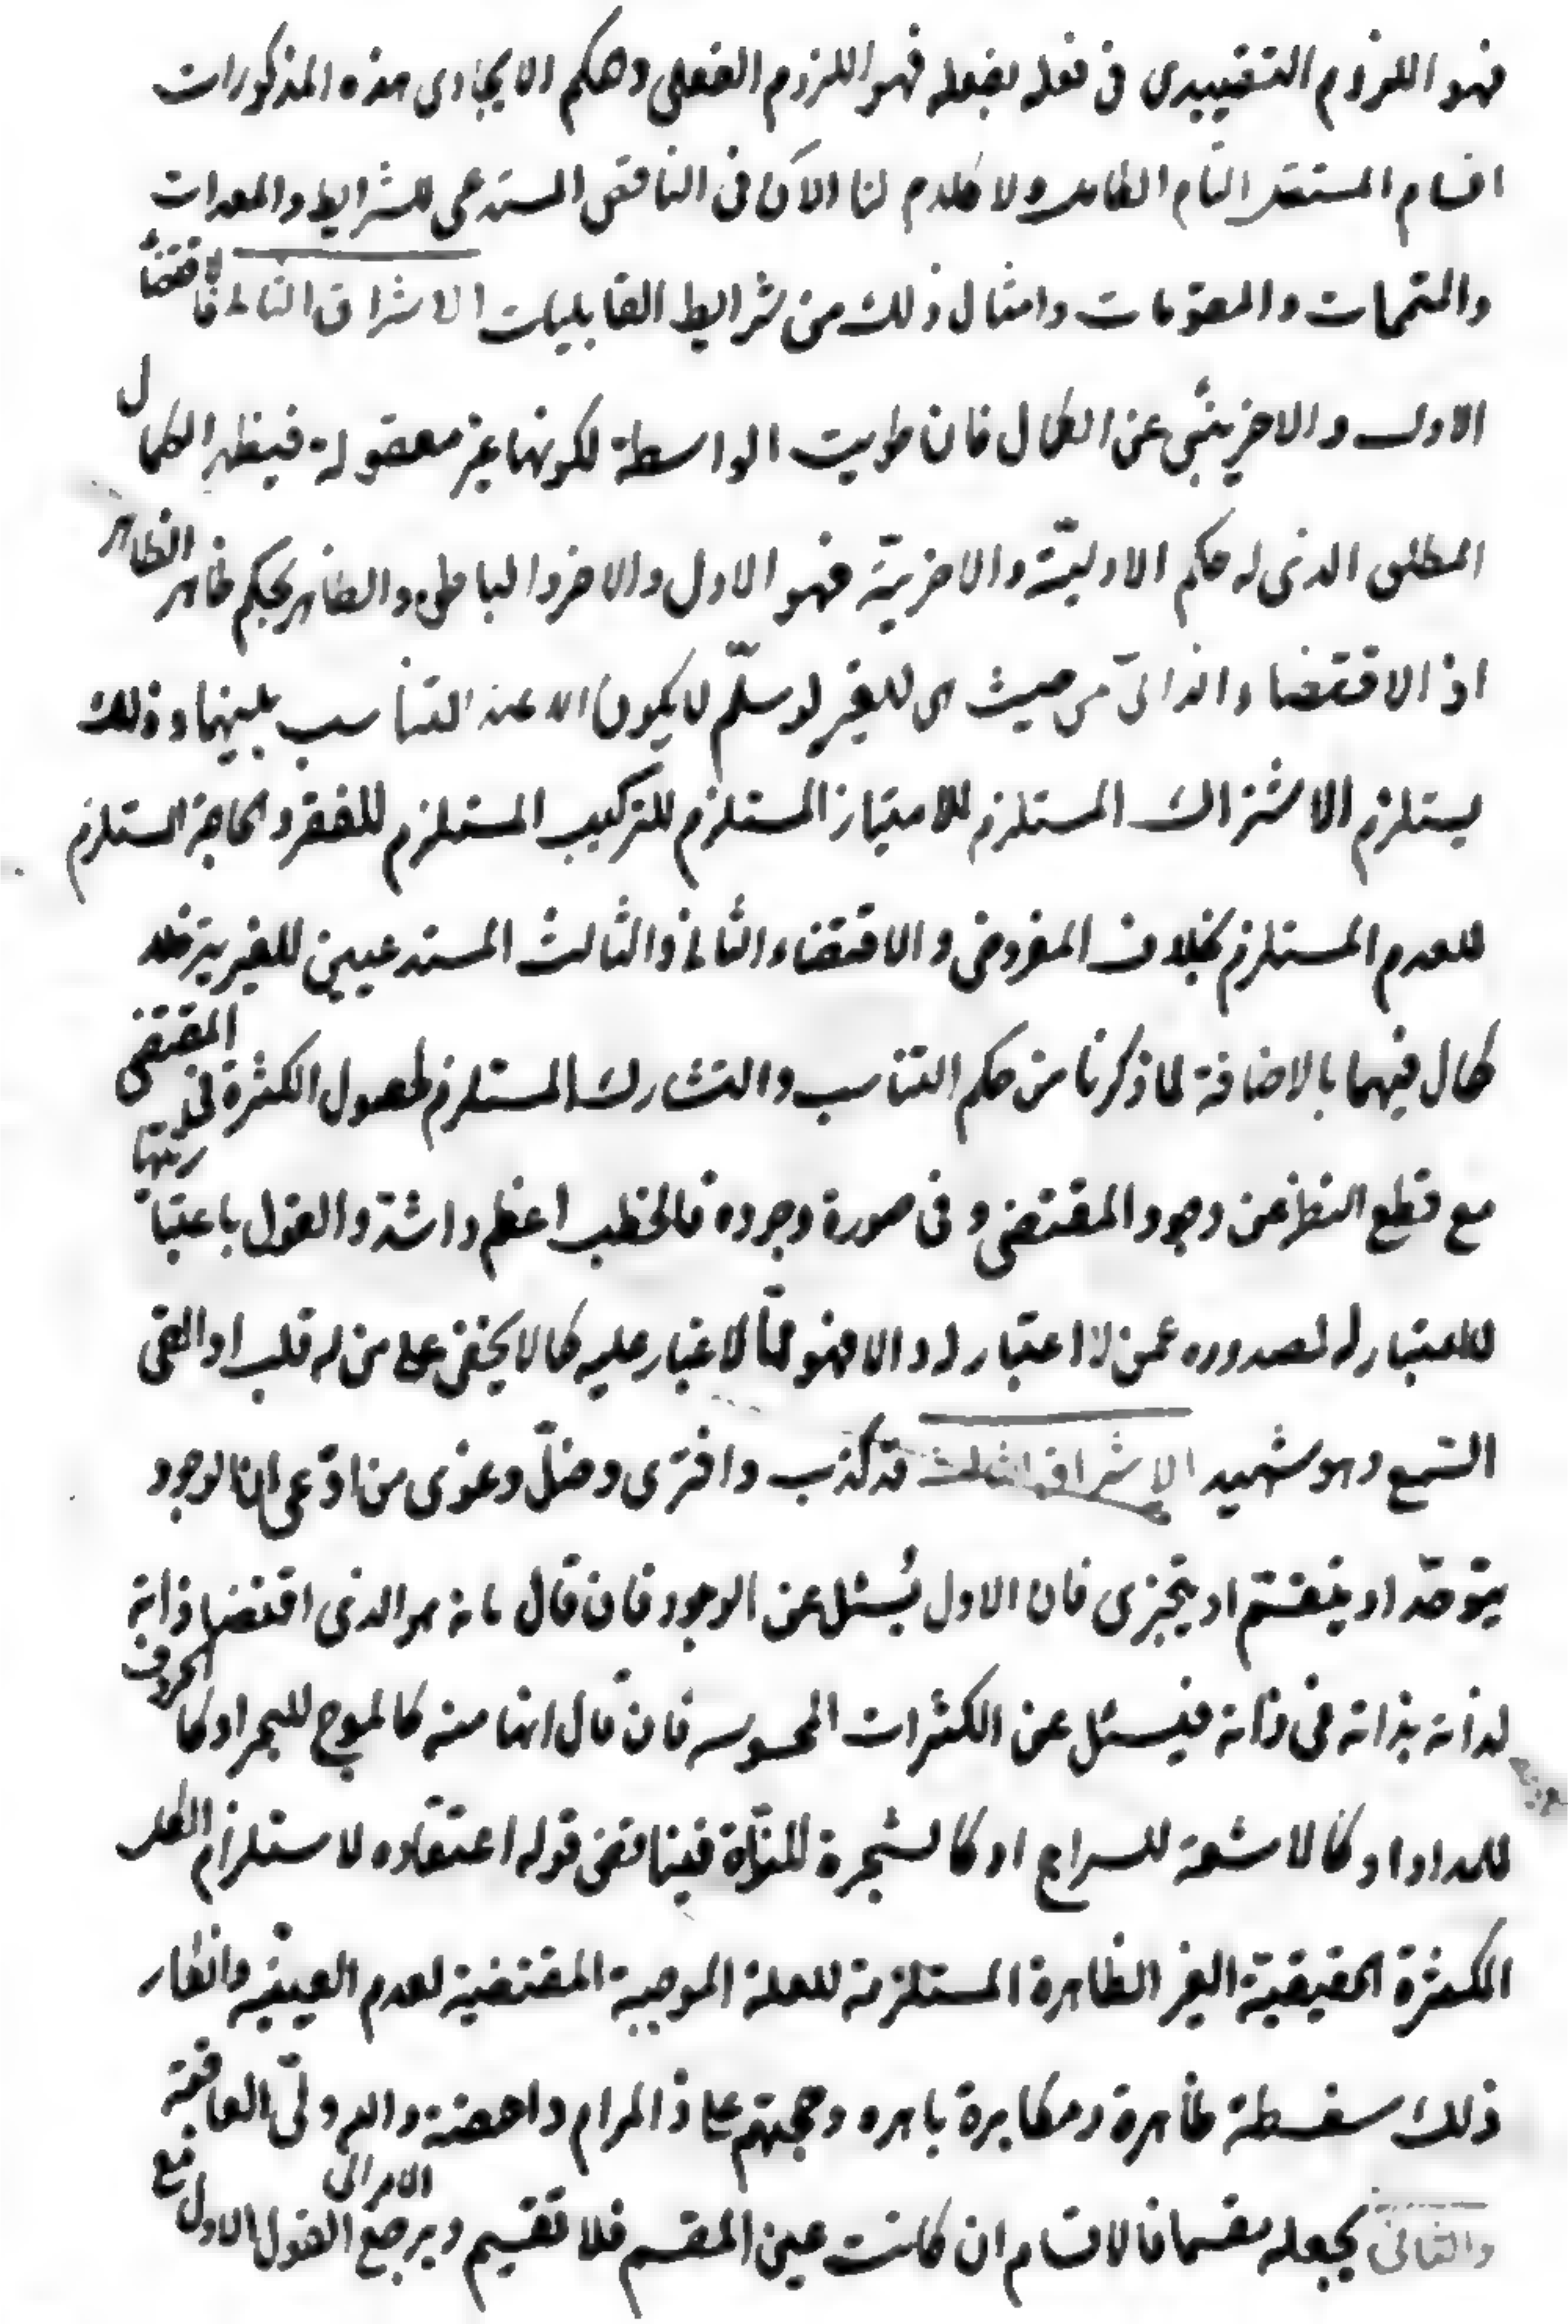 فهو اللزوم التقييدى فى فعله بفعله فهو اللزوم الفعلى وحكم الايجادى هذه المذكورات
اقسام المستقل التام الكامل ولا كلام لنا الآن فى الناقص المستدعى للشرايط والمعدات
والمتممات والمقومات وامثال ذلك من شرايط القابليات الاشراق الثانى لا فاقتضاء
الاول والاخر ينبئ عن الكمال فان طويت الواسطة لكونها غير معقولة فيظهر الكمال
المطلق الذى له حكم الاولية والاخرية فهو الاول والاخر والباطن والظاهر بحكم ظاهر الظاهر
اذ الاقتضاء الذاتى من حيث هى للغير لو سلّم لا يكون الا عند التناسب بينهما وذلك
يستلزم الاشتراك المستلزم للامتياز المستلزم للتركيب المستلزم للفقر والحاجة المستلزم
للعدم المستلزم بخلاف المفروض والاقتضاء الثانى والثالث المستدعيين للغير يتزلزل
كمال فيهما بالاضافة لما ذكرنا من حكم التناسب والتشارك المستلزم لحصول الكثرة فى المقتضى
مع قطع النظر عن وجود المقتضى وفى صورة وجوده فالخطب اعظم واشد والقول باعتباريتها
لا اعتبار له لصدوره عمن لا اعتبار له والا فهو ممّا لا غبار عليه كما لا يخفى على من له قلب او القى
السّمع وهو شهيد الاشراق الثالث قد كذب وافترى وضلّ وغوى من ادّعى ان الوجود
يتوحّد او ينقسم او يتجزى فان الاول يُسئل عن الوجود فان قال بانه هو الذى اقتضا ذاته
لذاته بذاته فى ذاته فيسئل عن الكثرات المحسوسه فان قال انها منه كالموج للبحر او كالحروف
للمداد او كالاشعة للسراج او كالشجرة للنّواة فيناقض قوله اعتقاده لاستلزام الكل
الكثرة الحقيقية الغير الظاهرة المستلزمة للعلة الموجبة المقتضية لعدم العينيّه وانكار
ذلك سفسطة ظاهرة ومكابرة باهره وحجتهم على ذا المرام داحضة والله ولىّ العافية
والثانى يجعله مقسما فالاقسام ان كانت عين المقسم فلا تقسيم ويرجع الامر الى القول الاول مع